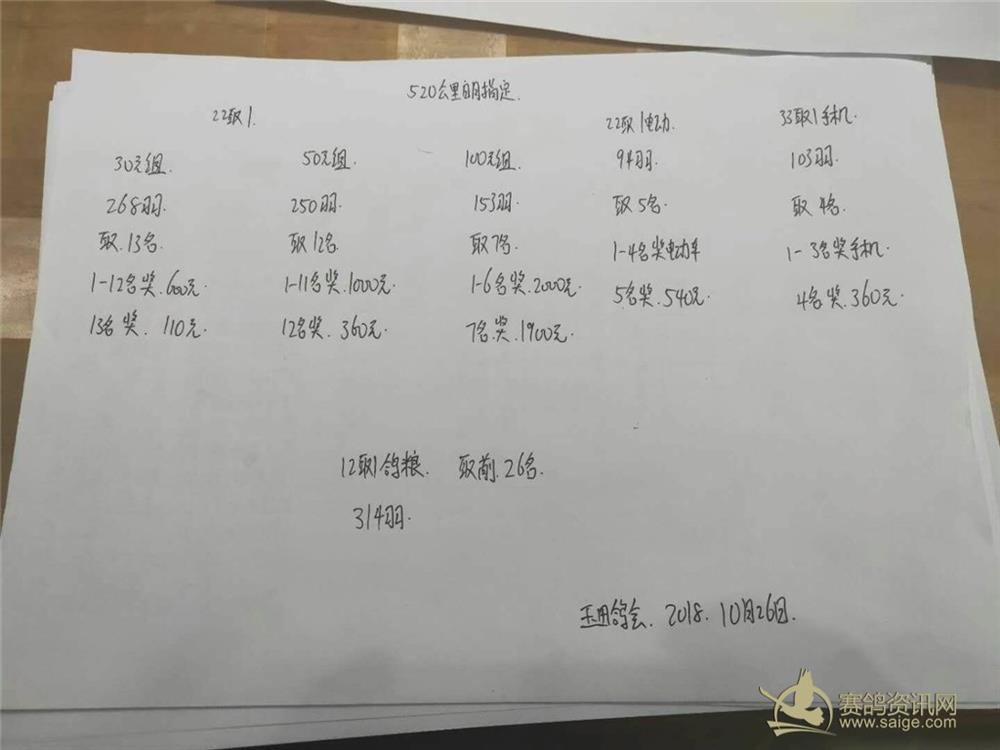 520公里自由指定.
22取1. 22取1电动. 33取1手机.
30元组 50元组 100元组 94羽. 103羽.
268羽. 250羽. 153羽. 取5名. 取4名.
取.13名. 取12名 取7名. 1-4名奖电动车 1-3名奖手机.
1-12名奖.600元. 1-11名奖.1000元. 1-6名奖.2000元. 5名奖.540元. 4名奖.360元.
13名奖. 110元. 12名奖. 360元. 7名.奖.1900元.
12取1鸽粮. 取前.26名.
314羽.
玉田鸽会. 2018. 10月26日.
赛鸽资讯网
www.saige.com